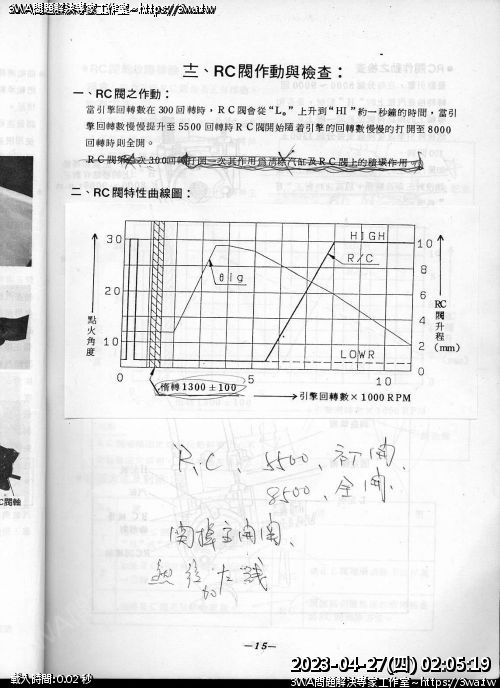 3WA問題解決專家工作室~https://3wa.tw
3WA問題解決專家工作室~https://3wa.tw
三、RC閥作動與檢查：
一、RC閥之作動：
當引擎回轉數在300回轉時，RC閥會從“L。”上升到“HI”約一秒鐘的時間，當引
擎回轉數慢慢提升至5500回轉時RC閥開始隨着引擎的回轉數慢慢的打開至8000
回轉時則全開。
RC閥第 次300回轉打開一次其作用爲清除汽缸及RC閥上的積碳作用。
二、RC閥特性曲線圖：
HIGH
R/C
θig
LOWR
30
20
10
點火角度
10
8
6
4
2
0
RC閥升程
(mm)
0
5
10
惰轉1300±100
引擎回轉數×1000RPM
R.C、5500、初開、
8500、全開、
閥
C閥軸
—15—
2023-04-27(四) 02:05:19
載入時間:0.02 秒
3WA問題解決專家工作室~https://3wa.tw